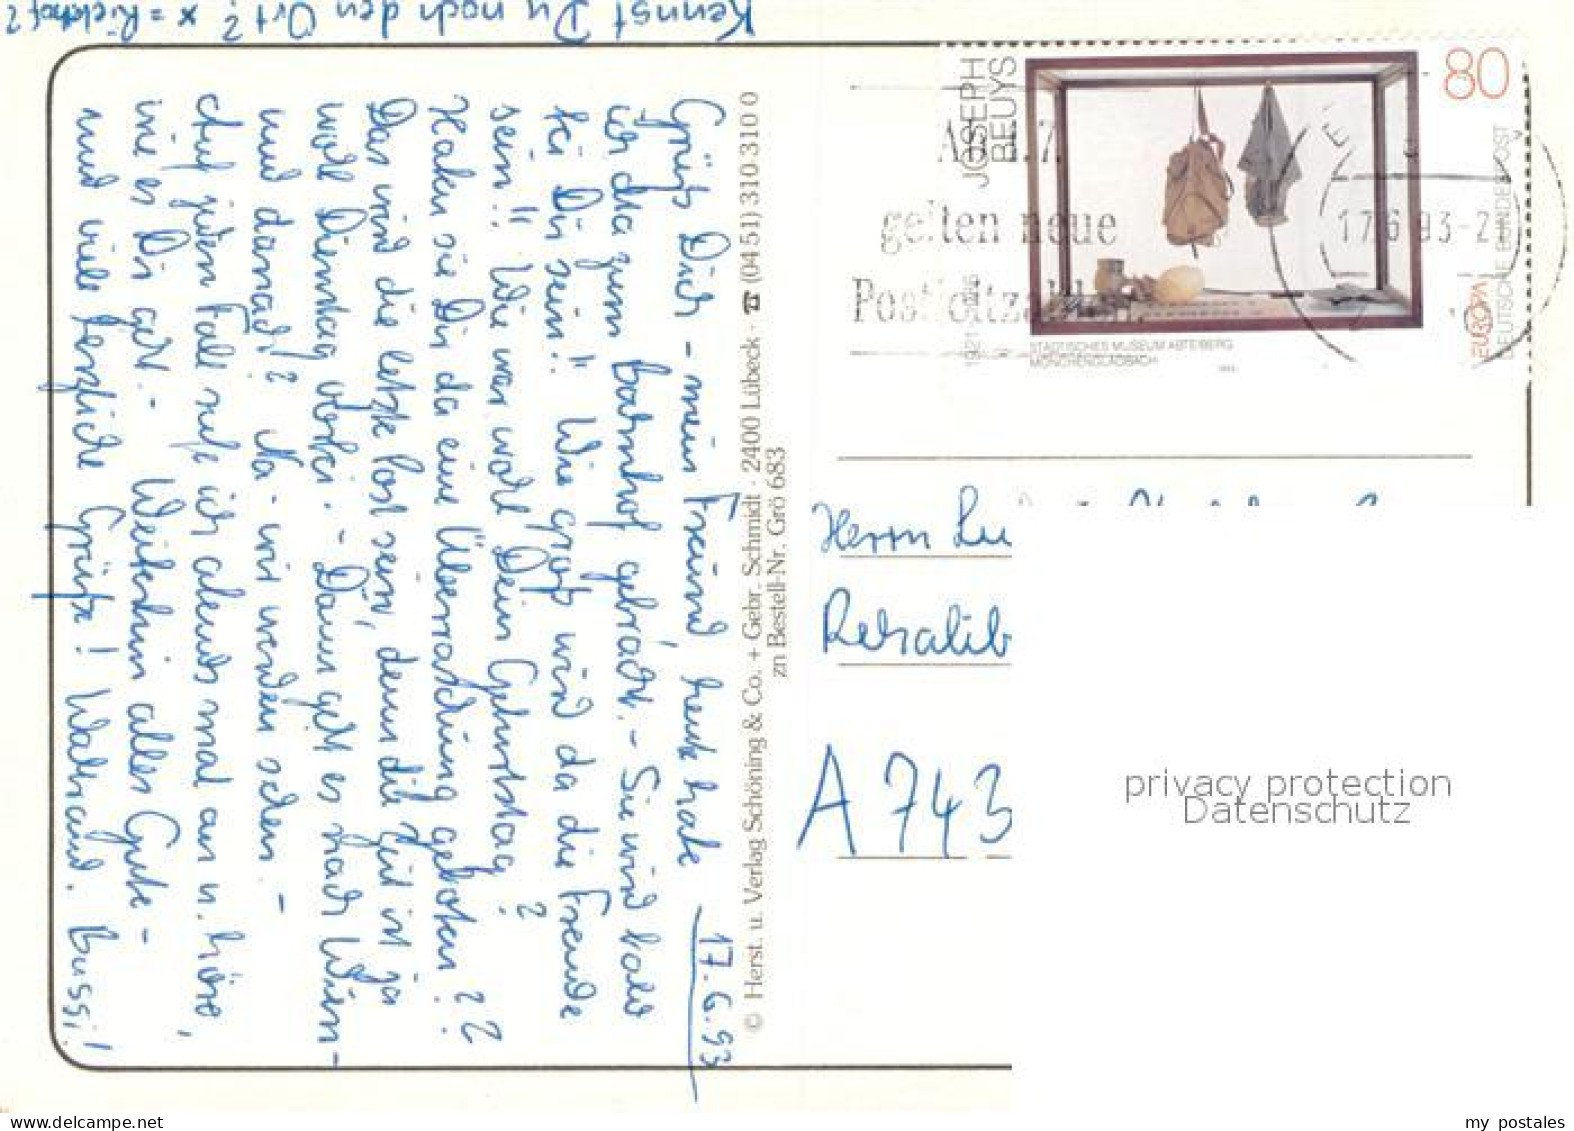 Kennst Du noch den Ort? x = Rickhof?
17.6.93
Grüß Dich - mein Freund, heute habe
ich dla zum Bahnhof gebracht. - Sie wird bald
bei Dir sein!! Wie groß wird da die Freude
sein!! Wie war wohl Dein Geburtstag?
Haben sie Dir da eine Überraschung geboten??
Das wird die letzte Post sein, denn die Zeit ist ja
wohl Dienstag vorbei. - Dann geht es nach Wien -
und danach? Na - wir werden sehen. -
Auf jeden Fall rufe ich abends mal an u. höre,
wie es Dir geht. - Weiterhin alles Gute -
und viele herzliche Grüße! Waltraud. Bussi!
© Herst. u. Verlag Schöning & Co. + Gebr. Schmidt · 2400 Lübeck · ☎ (04 51) 310 310 0
zn Bestell-Nr. Grö 683
JOSEPH
BEUYS
1921-1986
80
STÄDTISCHES MUSEUM ABTEIBERG
MÖNCHENGLADBACH
EUROPA
DEUTSCHE BUNDESPOST
Ab 1.7.
gelten neue
Postleitzahlen.
17.6.93-2
Herrn Lu
Rehaklib
A 743
privacy protection
Datenschutz
www.delcampe.net
my postales